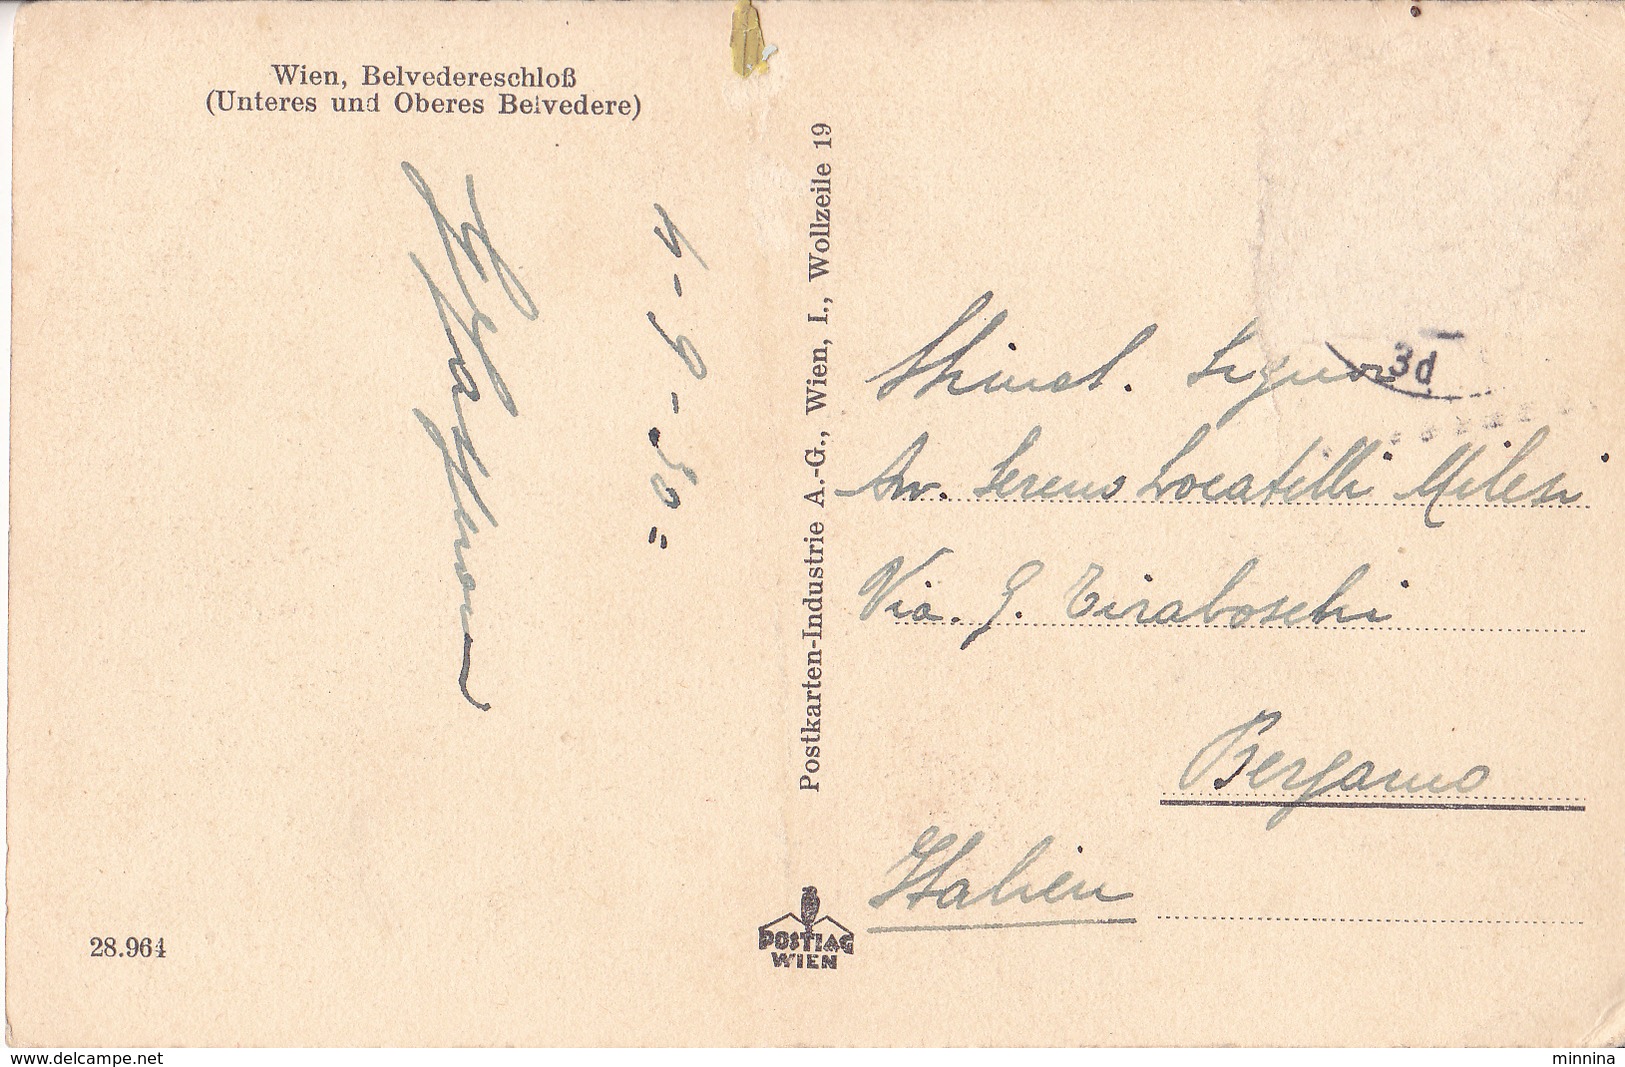 Wien, Belvedereschloß
(Unteres und Oberes Belvedere)
4-9-50=
Postkarten-Industrie A.-G., Wien, I., Wollzeile 19
Stimat. Signor
3d
Avv. Sereno Locatelli Milesi
Via. G. Tiraboschi
Bergamo
Italien
28.964
POSTIAG
WIEN
www.delcampe.net
minnina